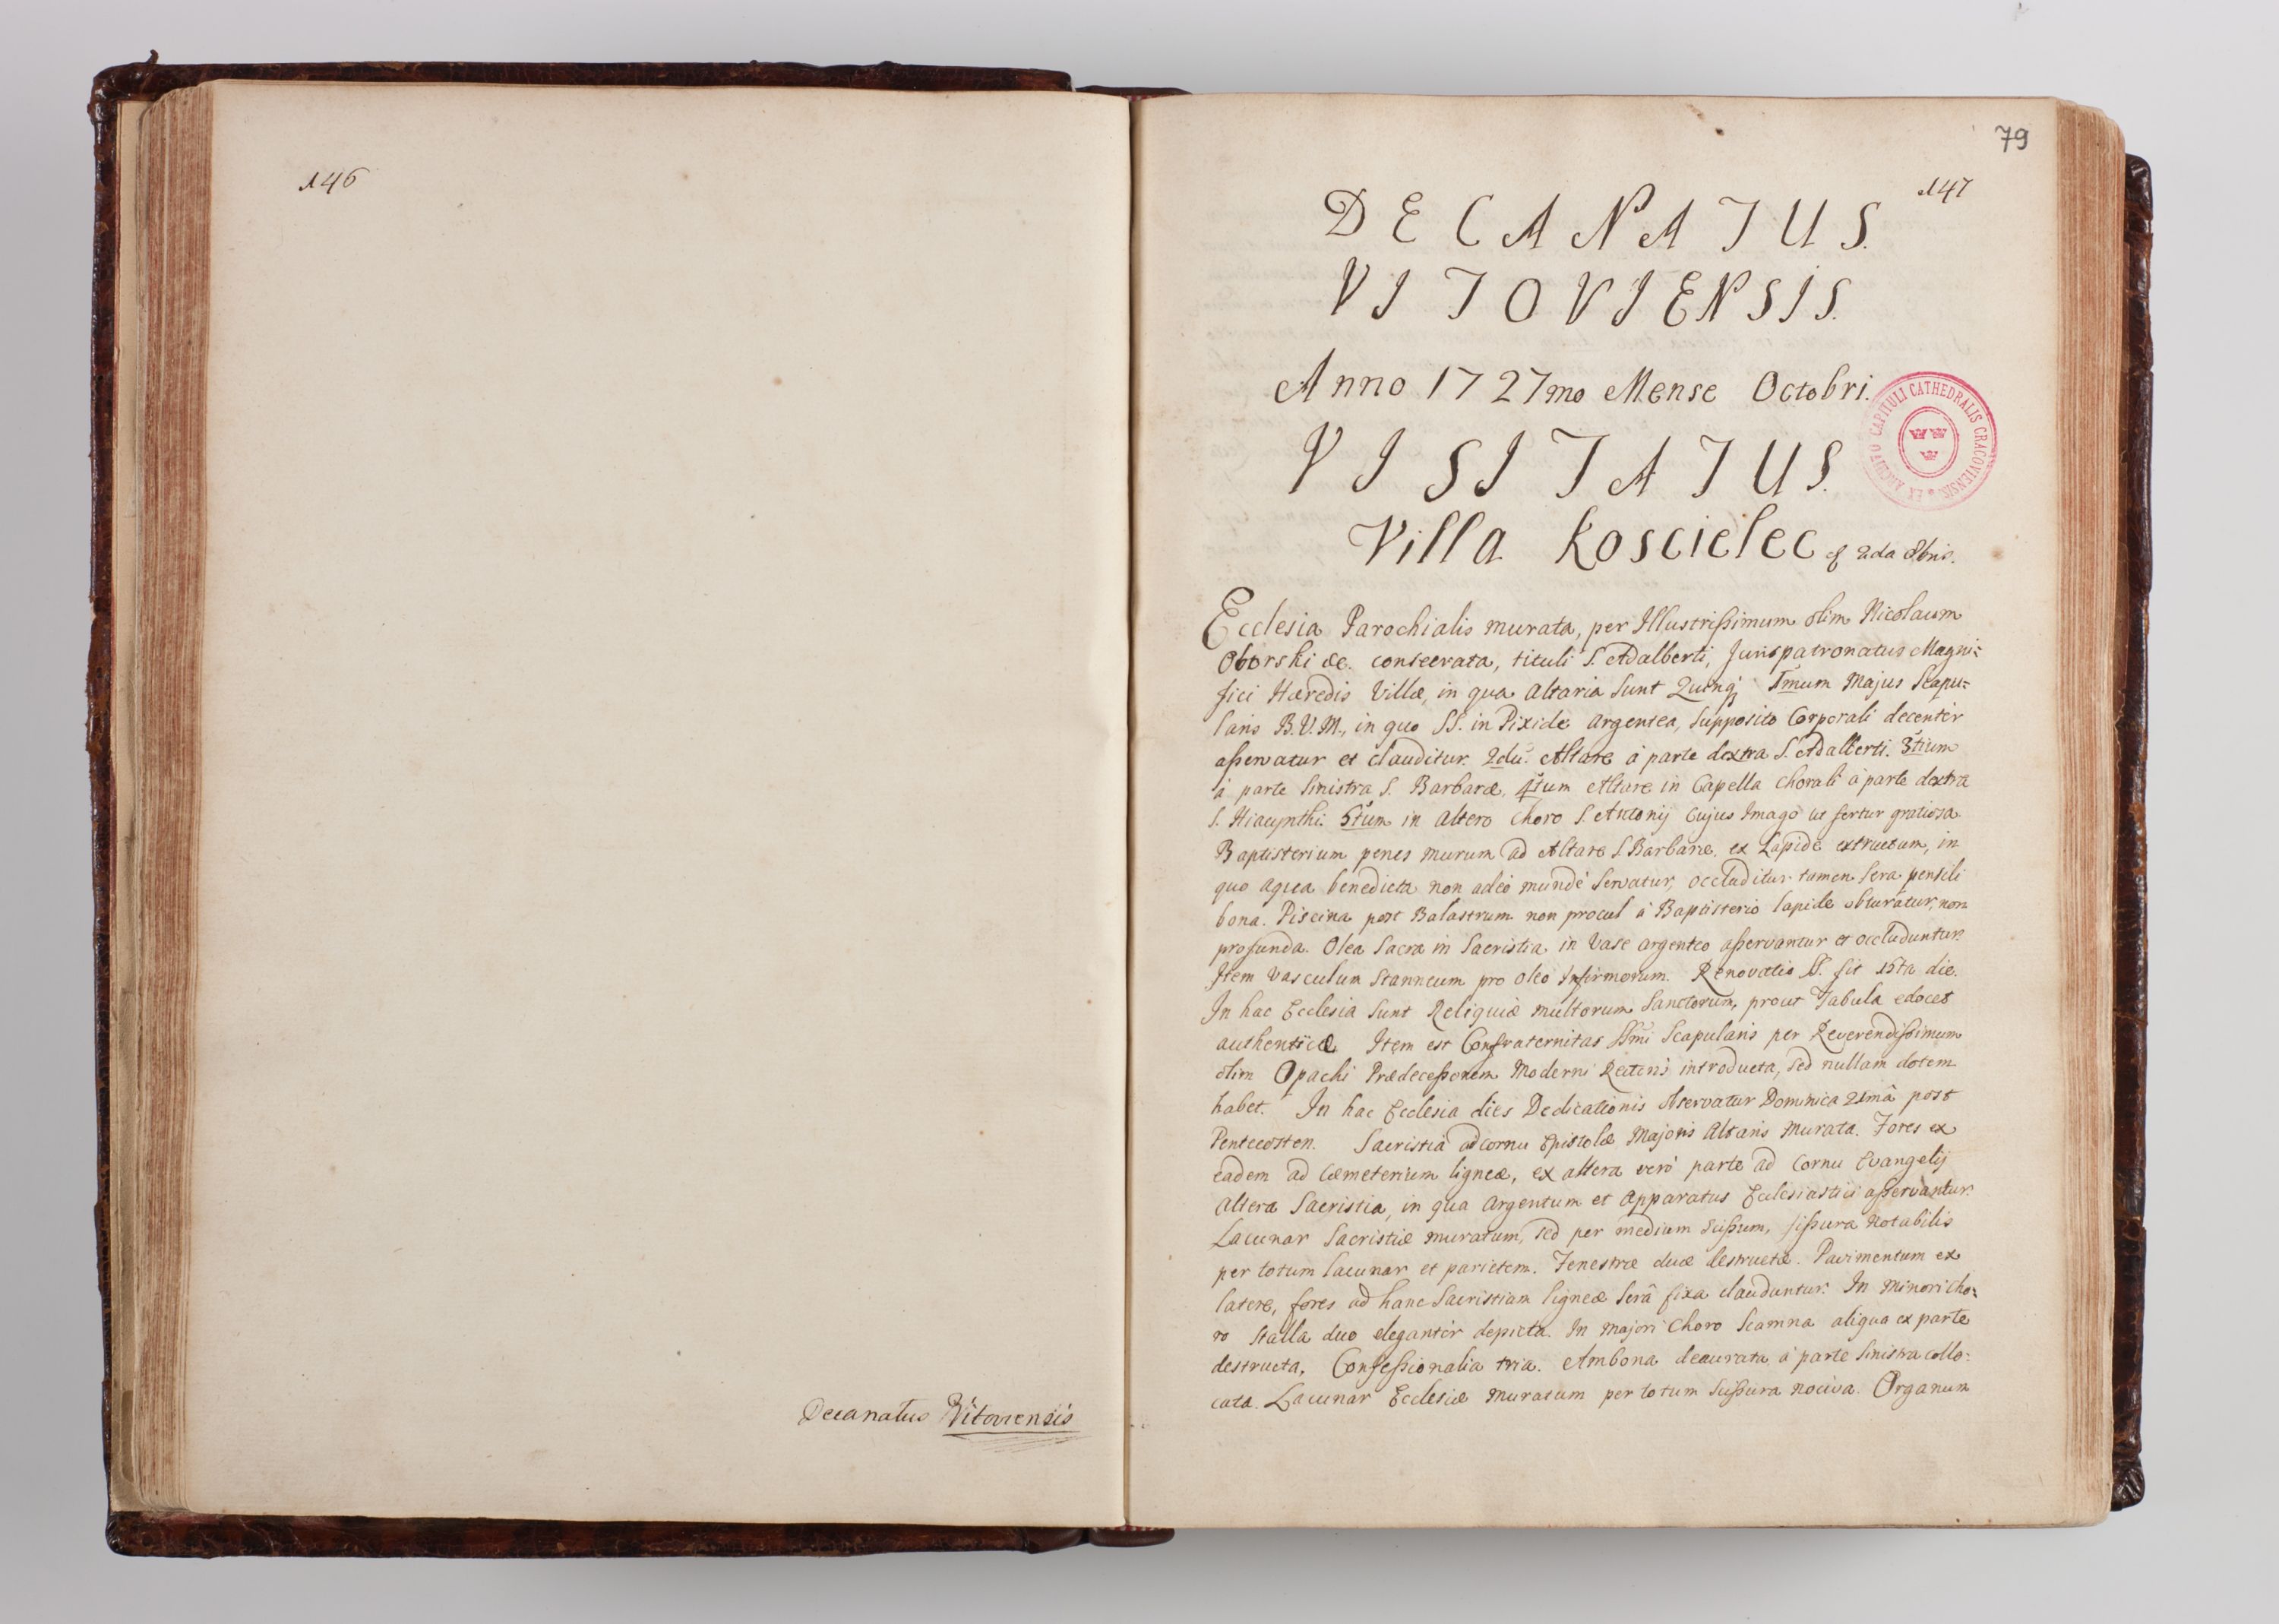 146
Decanatus Vitoviensis
79
147
DECANATUS
VITOVIENSIS.
Anno 1727mo Mense Octobri.
VISITATUS.
Villa Koscielec 2da 8bris.
EX ARCHIVO CAPITULI CATHEDRALIS CRACOVIENSIS
Ecclesia Parochialis murata, per Illustrissimum olim Nicolaum
Oborski &c. consecrata, tituli S. Adalberti, Jurispatronatus Magni=
fici Hæredis Villæ, in qua Altaria sunt Quinq; 1mum Majus Scapu=
laris B.V.M., in quo SS. in Pixide argentea, supposito Corporali decentèr
asservatur et clauditur. 2dũ. Altare à parte dextra S. Adalberti. 3tium
à parte sinistra S. Barbaræ, 4tum Altare in Capella Chorali à parte dextra
S. Hiacynthi. 5tum in altero Choro S. Antonij Cujus Imago ut fertur gratiosa
Baptisterium penes murum ad Altare S. Barbaræ, ex Lapide extructum, in
quo aqua benedicta non adeò mundè servatur, occluditur tamen sera pensili
bona. Piscina post Balastrum non procul à Baptisterio lapide obturatur, non
profunda. Olea Sacra in Sacristia in Vase argenteo asservantur et occluduntur.
Item Vasculum Stanneum pro oleo Infirmorum. Renovatio SS. fit 15ta die.
In hac Ecclesia sunt Reliquiæ multorum Sanctorum, prout Tabula edocet
authenticæ. Item est Confraternitas SSmi Scapularis per Reverendissimum
olim Opachi Prædecessorem Moderni Rectoris introducta, sed nullam dotem
habet. In hac Ecclesia dies Dedicationis observatur Dominica 21mâ post
Pentecosten. Sacristia ad cornu Epistolæ Majoris Altaris murata. Fores ex
eadem ad Cæmeterium ligneæ, ex altera verò parte ad Cornu Evangelij
altera Sacristia, in qua Argentum et Apparatus Ecclesiastici asservantur.
Lacunar Sacristiæ muratum, sed per medium scissum, fissura notabilis
per totum lacunar et parietem. Fenestræ duæ destructæ. Pavimentum ex
latere, fores ad hanc Sacristiam ligneæ serâ fixa clauduntur. In Minori Cho=
ro Stalla duo elegantèr depicta. In majori Choro Scamna aliqua ex parte
destructa, Confessionalia tria. Ambona deaurata à parte sinistra collo=
cata. Lacunar Ecclesiæ muratum per totum scissura nociva. Organum